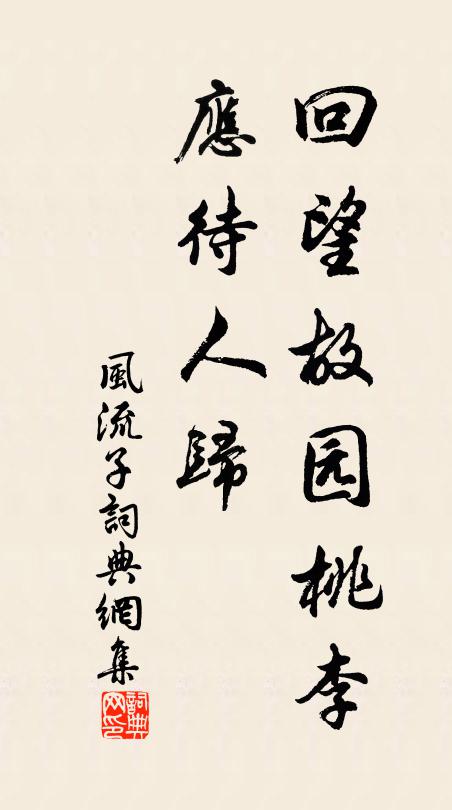 回望故园桃李
應待人歸
風流子詞典網集
詞典网印